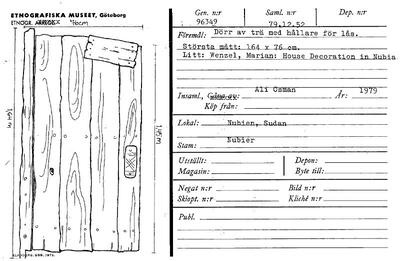 ETNOGRAFISKA MUSEET, Göteborg
ETNOGR. 
164 cm
145 cm
Gen. nr Saml. nr Dep. nr
96349 79.12.52
Föremål: Dörr av trä med hållare för lås.
Största mått: 164 x 76 cm.
Litt: Wensel, Marian: House Decoration in Nubia
Insaml., Gåva av: Ali Osman År: 1979
Köp från:
Lokal: Nubien, Sudan
Stam: Nubier
Utställt: Depon:
Magasin: Byte till:
Negat n:r Bild n:r
Skiopt. n:r Kliché n:r
Publ.